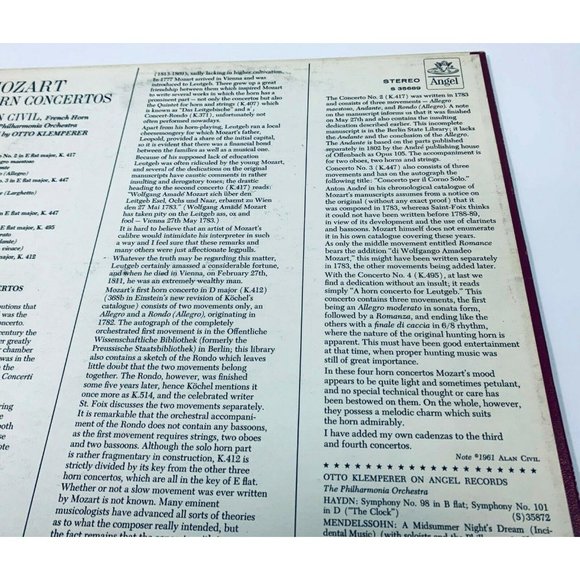 MOZART
ORN CONCERTOS
N CIVIL, French Horn
Philharmonia Orchestra
by OTTO KLEMPERER
No. 2 in E flat major, K. 417
(Allegro)
E flat major, K. 447
(Larghetto)
E flat major, K. 495
major, K. 412
(1813-1869), sadly lacking in higher cultivation.
In 1777 Mozart arrived in Vienna and was
introduced to Leutgeb. There grew a great
friendship between them which inspired Mozart
to write several works in which the horn has a
prominent part - not only the concertos but also
the Quintet for horn and strings (K.407) which
is known as "Das Leitgebische" and a
Concert-Rondo (K.371), unfortunately not
often performed nowadays.
Apart from his horn-playing, Leutgeb ran a local
cheesemongery for which Mozart's father,
Leopold, provided a share of the initial capital,
so it is evident that there was a financial bond
between the Mozarts and Leutgeb as well as a
musical one.
Because of his supposed lack of education
Leutgeb was often ridiculed by the young Mozart,
and several of the dedications on the original
manuscripts have caustic comments or rather
insulting and derogatory tones; the drastic
heading to the second concerto (K.417) reads:
"Wolfgang Amadé Mozart sich über den
Leitgeb Esel, Ochs und Naar, erbarmt zu Wien
den 27 Mai 1783." (Wolfgang Amadé Mozart
has taken pity on the Leitgeb ass, ox and
fool — Vienna 27th May 1783.)
It is hard to believe that an artist of Mozart's
calibre would intimidate his interpreter in such
a way and I feel sure that these remarks and
many others were just affectionate legpulls.
Whatever the truth may be regarding this matter,
Leutgeb certainly amassed a considerable fortune,
and when he died in Vienna, on February 27th,
1811, he was an extremely wealthy man.
Mozart's first horn concerto in D major (K.412)
(368b in Einstein's new revision of Köchel's
catalogue) consists of two movements only, an
Allegro and a Rondo (Allegro), originating in
1782. The autograph of the completely
orchestrated first movement is in the Öffentliche
Wissenschaftliche Bibliothek (formerly the
Preussische Staatsbibliothek) in Berlin; this library
also contains a sketch of the Rondo which leaves
little doubt that the two movements belong
together. The Rondo, however, was finished
some five years later, hence Köchel mentions it
once more as K.514, and the celebrated writer
St. Foix discusses the two movements separately.
It is remarkable that the orchestral accompani-
ment of the Rondo does not contain any bassoons,
as the first movement requires strings, two oboes
and two bassoons. Although the solo horn part
is rather fragmentary in construction, K.412 is
strictly divided by its key from the other three
horn concertos, which are all in the key of E flat.
Whether or not a slow movement was ever written
by Mozart is not known. Many eminent
musicologists have advanced all sorts of theories
as to what the composer really intended, but
the fact remains that the
STEREO
S 35689
Angel
The Concerto No. 2 (K.417) was written in 1783
and consists of three movements — Allegro
maestoso, Andante, and Rondo (Allegro). A note on
the manuscript informs us that it was finished on
May 27th and also contains the insulting
dedication described earlier. This incomplete
manuscript is in the Berlin State Library; it lacks
the Andante and the conclusion of the Allegro.
The Andante is based on the parts published
separately in 1802 by the André publishing house
of Offenbach as Opus 105. The accompaniment is
for two oboes, two horns and strings.
Concerto No. 3 (K.447) also consists of three
movements and has on the autograph the
following title: "Concerto per il Corno Solo."
Anton André in his chronological catalogue of
Mozart's manuscripts assumes from a notice on
the original (without any exact proof) that it
was composed in 1783, whereas Saint-Foix thinks
it could not have been written before 1788-89,
in view of its development and the use of clarinets
and bassoons. Mozart himself does not enumerate
it in his own catalogue covering these years.
As only the middle movement entitled Romance
bears the addition "di Wolfgango Amadeo
Mozart," this might have been written separately
in 1783, the other movements being added later.
With the Concerto No. 4 (K.495), at last we
find a dedication without an insult; it reads
simply "A horn concerto for Leutgeb." This
concerto contains three movements, the first
being an Allegro moderato in sonata form,
followed by a Romanza, and ending like the
others with a finale di caccia in 6/8 rhythm,
where the nature of the original hunting horn is
apparent. This must have been good entertainment
at that time, when proper hunting music was
still of great importance.
In these four horn concertos Mozart's mood
appears to be quite light and sometimes petulant,
and no special technical thought or care has
been bestowed on them. On the whole, however,
they possess a melodic charm which suits
the horn admirably.
I have added my own cadenzas to the third
and fourth concertos.
Note ©1961 ALAN CIVIL.
OTTO KLEMPERER ON ANGEL RECORDS
The Philharmonia Orchestra
HAYDN: Symphony No. 98 in B flat; Symphony No. 101
in D ("The Clock") (S)35872
MENDELSSOHN: A Midsummer Night's Dream (Inci-
dental Music) (with soloists and